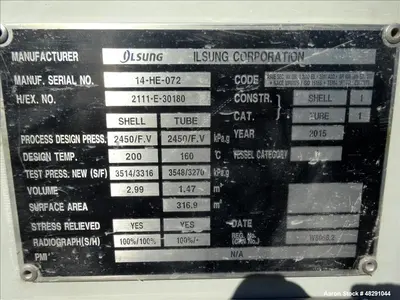 MANUFACTURER ILSUNG ILSUNG CORPORATION
MANUF. SERIAL NO. 14-HE-072 CODE
H/EX. NO. 2111-E-30180 CONSTR. SHELL 1
SHELL TUBE CAT. TUBE 1
PROCESS DESIGN PRESS. 2450/F.V 2450/F.V kPa.g YEAR 2015
DESIGN TEMP. 200 160 °C VESSEL CATEGORY
TEST PRESS. NEW (S/F) 3514/3316 3548/3270 kPa.g
VOLUME 2.99 1.47 m³
SURFACE AREA 316.9 m²
STRESS RELIEVED YES YES DATE
RADIOGRAPH(S/H) 100%/100% 100%/- REG. NO.
PMI N/A
Aaron Stock # 48291044